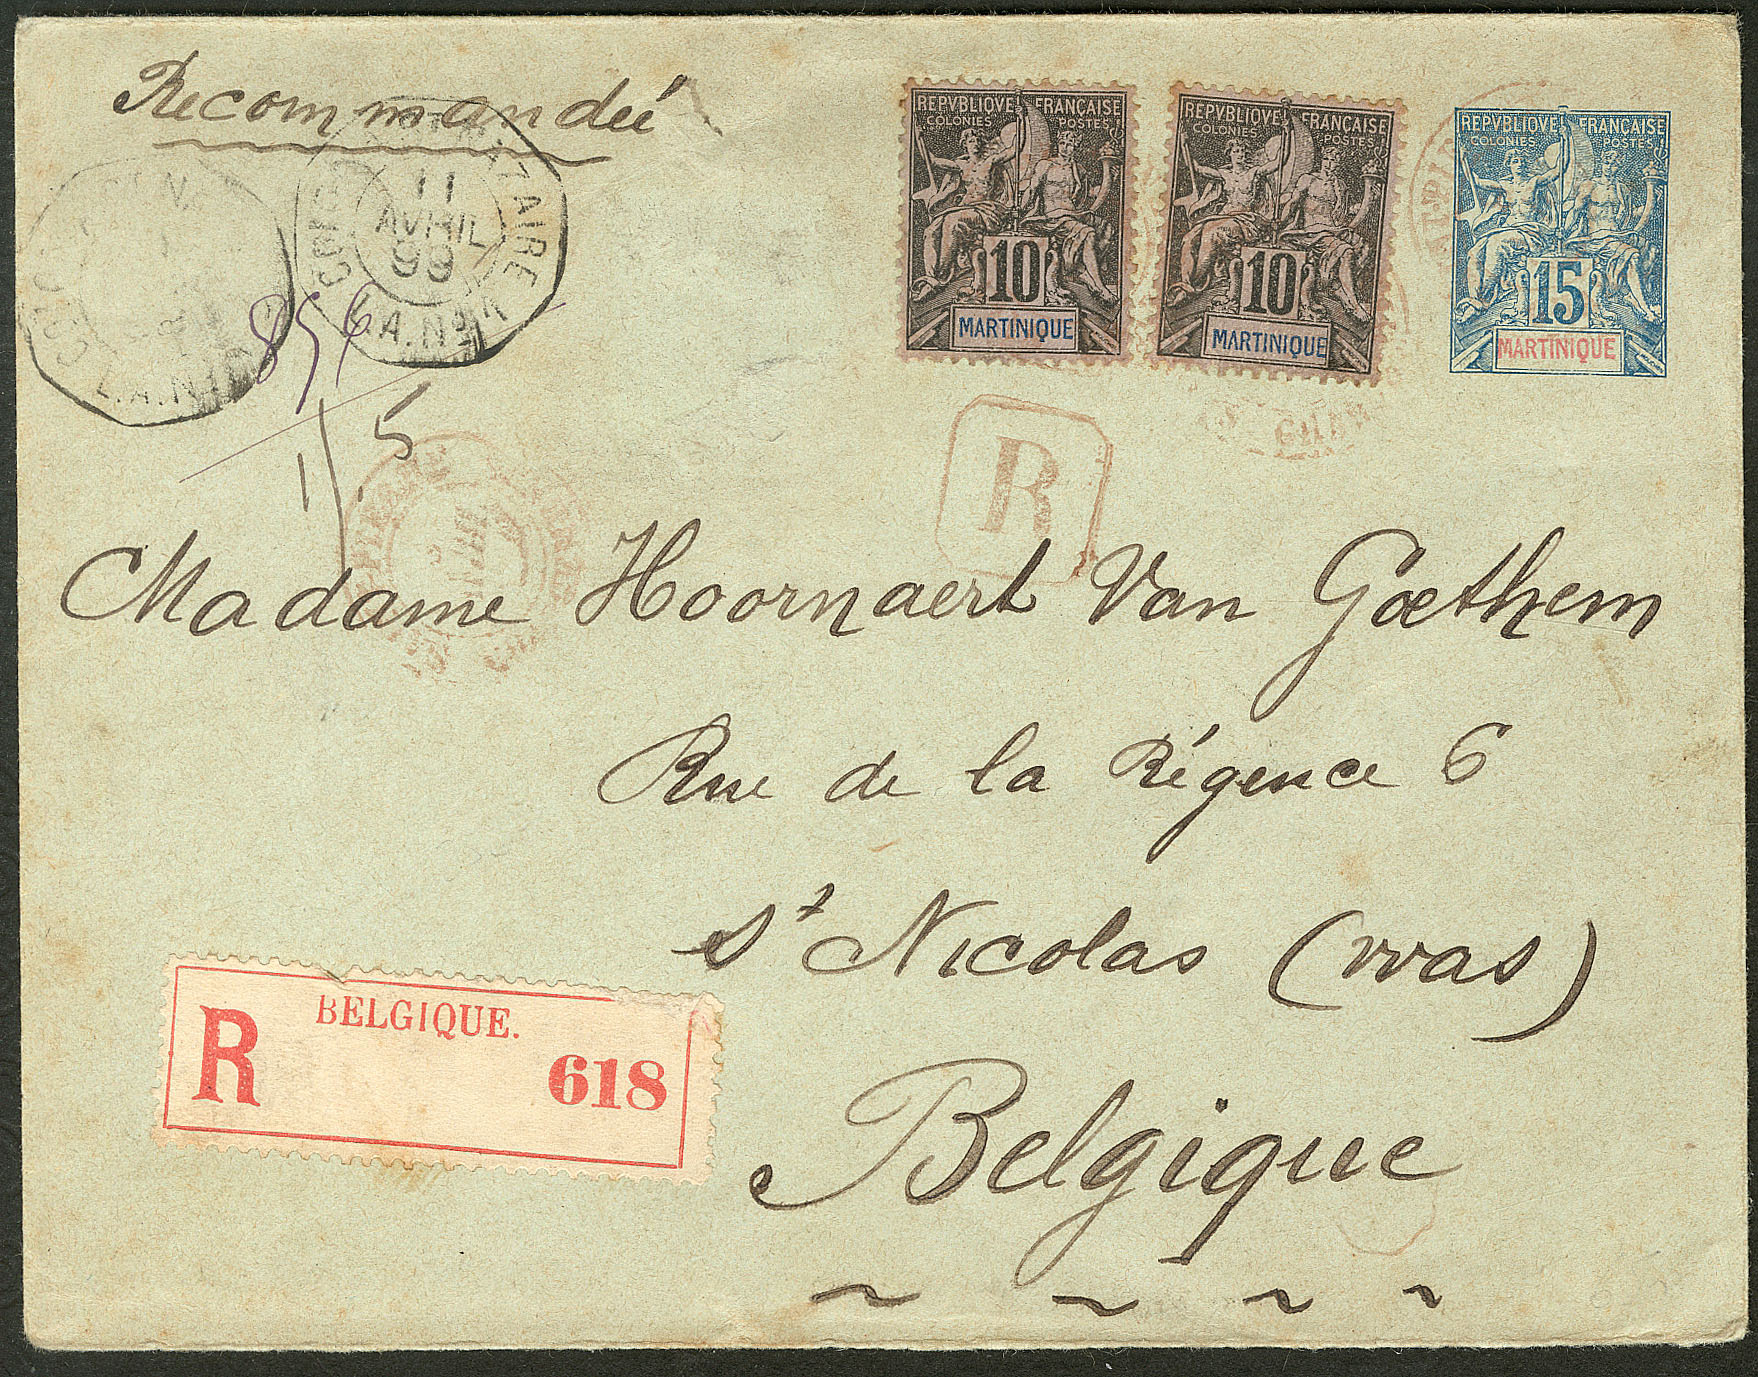 Recommandée
REPVBLIQVE FRANÇAISE
COLONIES POSTES
10
MARTINIQUE
REPVBLIQVE FRANÇAISE
COLONIES POSTES
10
MARTINIQUE
REPVBLIQVE FRANÇAISE
COLONIES POSTES
15
MARTINIQUE
11
AVRIL
99
L.A.N
L.A.N
856
15
R
Madame Hoornaert Van Goethem
Rue de la Régence 6
St Nicolas (Waas)
Belgique
BELGIQUE.
R 618